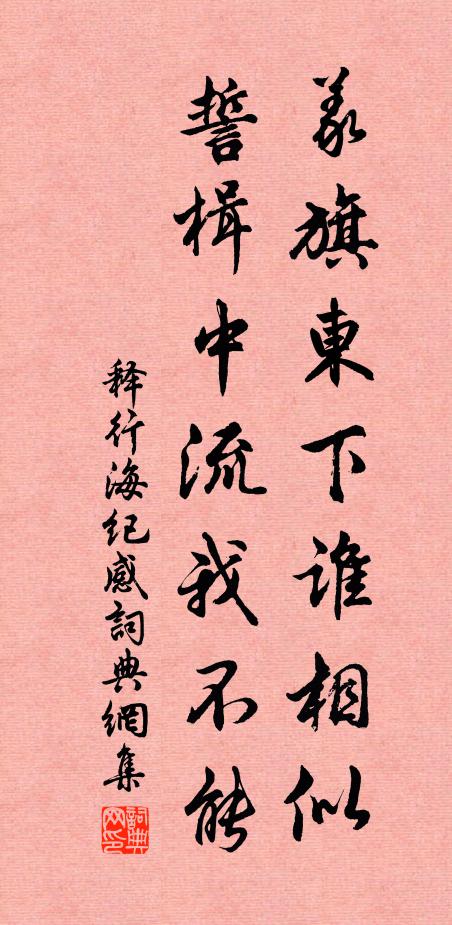 義旗東下谁相似
誓楫中流我不能
释行海纪感詞典網集
詞典网印